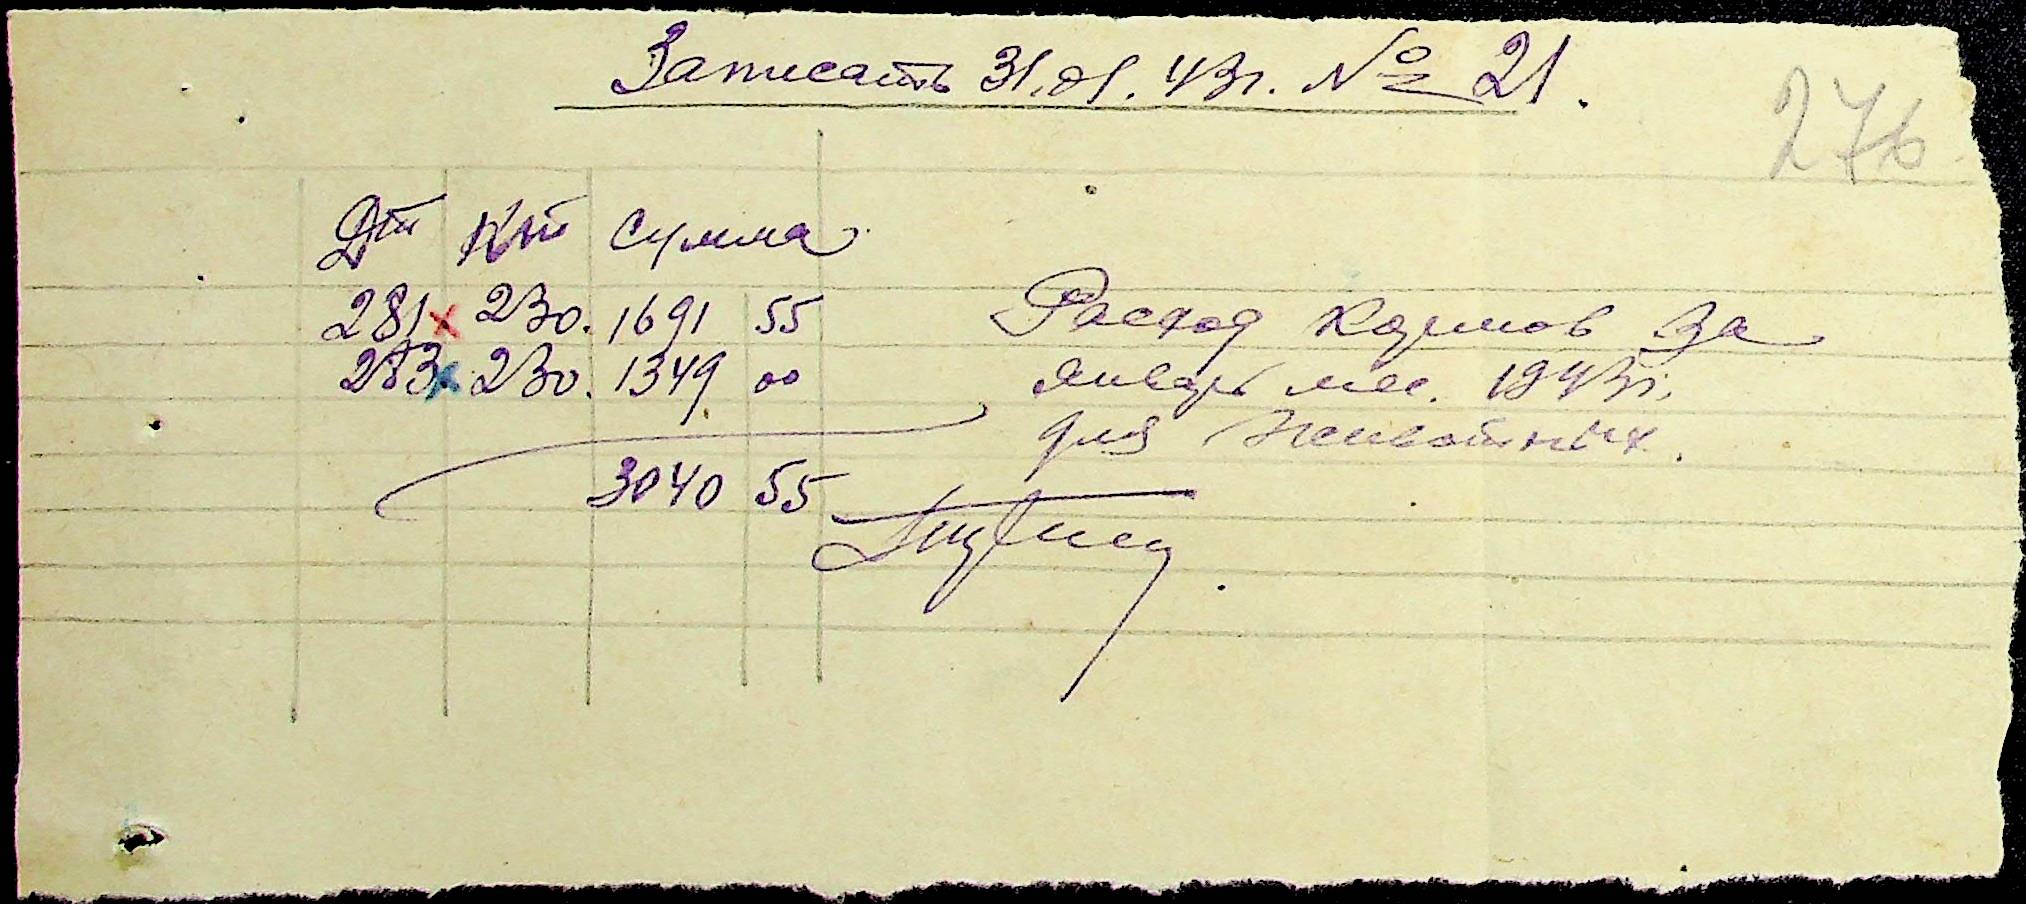 Записать 31.01.43г. № 21.
276
Дт Кт Сумма
281 х 230. 1691 55
283 х 230. 1349 00
3040 55
Расход кормов за
январь мес. 1943г.
для животных.